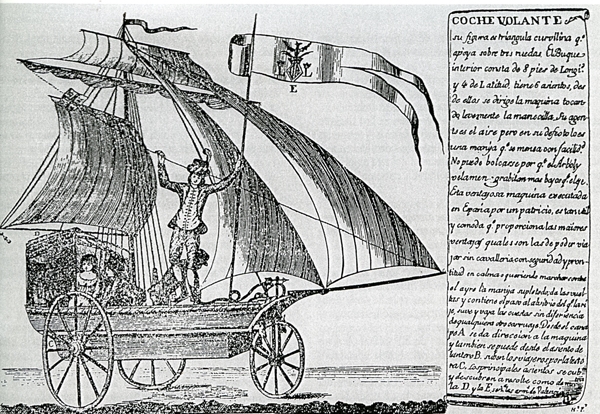 COCHE VOLANTE
su figura es triangula curvilina q.e
apoya sobre tres ruedas. El Buque
interior consta de 8 pies de Longi.d
y 4 de Latitud, tiene 6 asientos, des
de ellos se dirige la maquina tocan
do levemente la manecilla. Su agen
te es el aire pero en su defecto lo es
una manija q.e se menea con facilid.d
No puede bolcarse por q.e el Arbol y
velamen gravitan mas bajo q.e el eje.
Esta ventajosa maquina executada
en España por un patricio, es tan util
y comoda q.e proporciona las maiores
ventajas quales son las de poder via
jar sin cavalleria con seguridad y pron
titud en calmas queriendo marchar contra
el ayre la manija suple todo, da las vuel
tas y contiene el paso al advitrio del q.e la ri
je, suve y vaja las cuestas sin diferiencia
de qualquiera otro carruaje. Desde el cam
po A se da direccion a la maquina
y tambien se puede desde el asiento de
lantero B. ven los viajeros por la testa
ra C. Los principales asientos se cubr
y descubren a resorte como de
la D y la E señ
L
E
D
N.o F.o